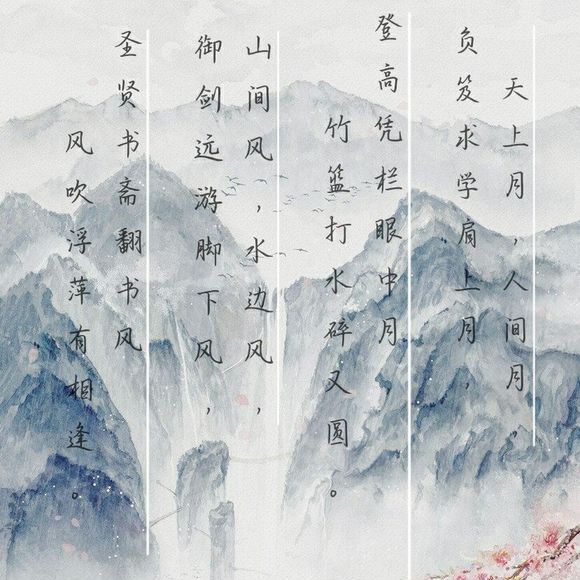 天上月，人间月，
负笈求学肩上月，
登高凭栏眼中月，
竹篮打水碎又圆。
山间风，水边风，
御剑远游脚下风，
圣贤书斋翻书风
风吹浮萍有相逢。